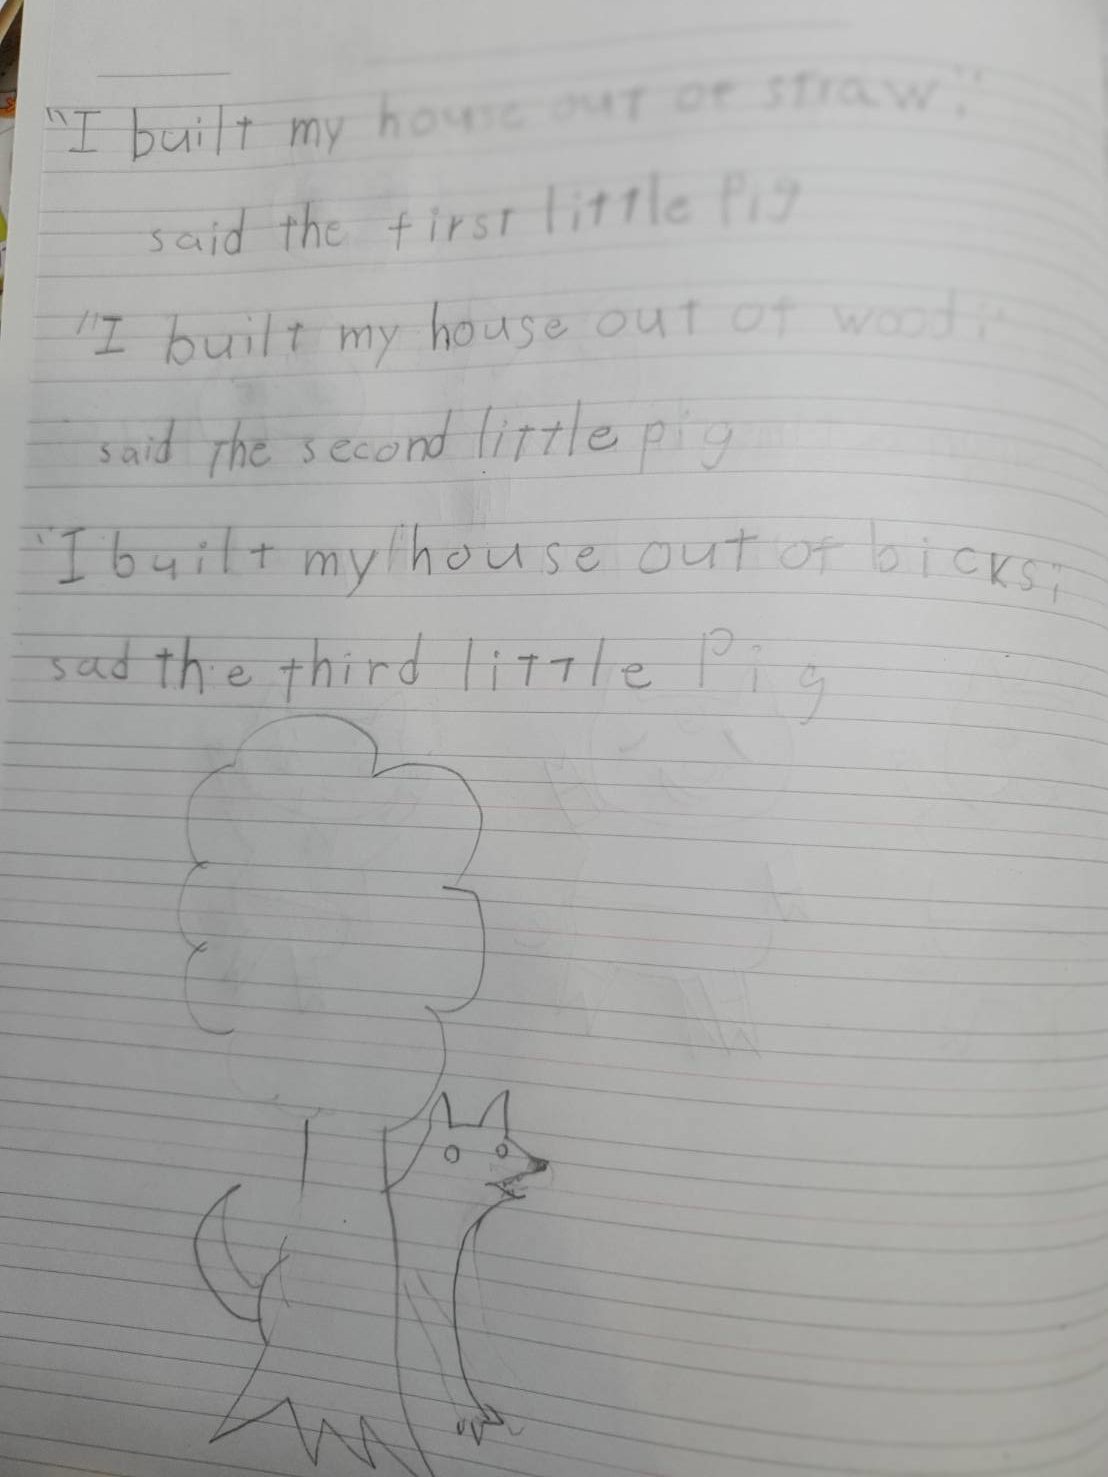 "I built my house out of straw,"
said the first little Pig
"I built my house out of wood,"
said the second little pig
"I built my house out of bicks,
sad the third little Pig